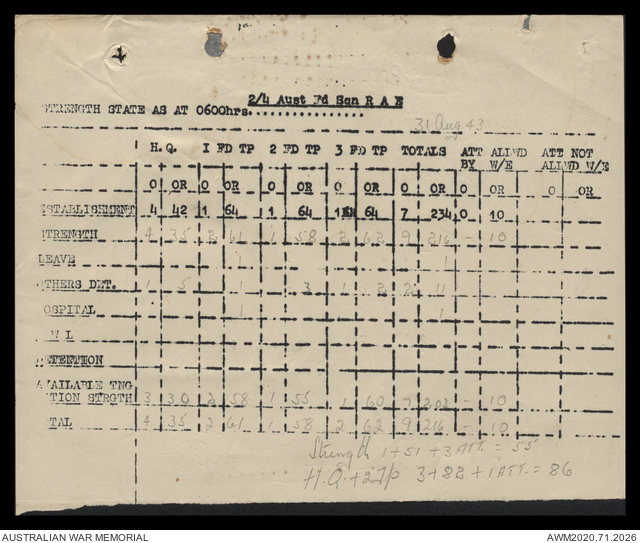 2/4 Aust Fd Sqn R A E
STRENGTH STATE AS AT 0600hrs................
31 Aug 43
H. Q. 1 FD TP 2 FD TP 3 FD TP TOTALS ATT ALLWD ATT NOT
BY W/E ALLWD W/E
O OR O OR O OR O OR O OR O OR O OR
ESTABLISHMENT 4 42 1 64 1 64 1 64 7 234 0 10
STRENGTH 4 35 2 61 1 58 2 62 9 216 - 10
LEAVE 1 1
OTHERS DET. 1 5 1 3 1 2 2 11
OSPITAL 1 1
W L
DETENTION
AVAILABLE TNG
TION STRGTH 3 30 2 58 1 55 1 60 7 203 - 10
TAL 4 35 2 61 1 58 2 62 9 216 - 10
Strength 1+51+3 ATT. = 55
H.Q.+2Tp 3+82+1 ATT. = 86
AUSTRALIAN WAR MEMORIAL AWM2020.71.2026